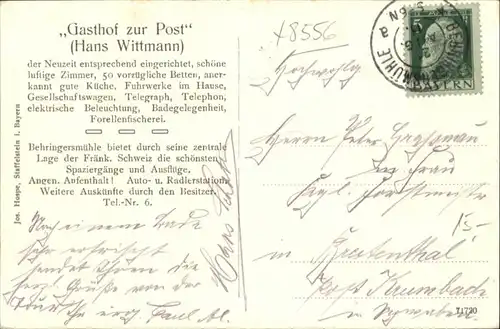 „Gasthof zur Post"
(Hans Wittmann)
der Neuzeit entsprechend eingerichtet, schöne
luftige Zimmer, 50 vorzügliche Betten, aner-
kannt gute Küche, Fuhrwerke im Hause,
Gesellschaftswagen, Telegraph, Telephon,
elektrische Beleuchtung, Badegelegenheit,
Forellenfischerei.
Behringersmühle bietet durch seine zentrale
Lage der Fränk. Schweiz die schönsten
Spaziergänge und Ausflüge.
Angen. Aufenthalt! Auto- u. Radlerstation
Weitere Auskünfte durch den Besitzer.
Tel.-Nr. 6.
Jos. Hospe, Staffelstein i. Bayern
Nach einem Bade
sehr erfrischt
sendet Ihnen die
herz. Grüße von der
Paul
Hans
+8556
BAYERN
Hochwohlg.
Herrn Peter
u. Frau
Kgl. Forstmeister
15-
in Breitenthal
Post Krumbach
in Schwaben
11720